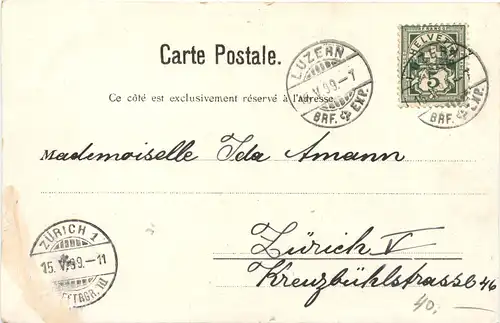 Carte Postale.
HELVETIA
5
LUZERN
V.99.-7
BRF. EXP.
Ce côté est exclusivement réservé à l'Adresse.
Mademoiselle Ida Amann
Zürich V
Kreuzbühlstrasse 46
40.
ZÜRICH 1
15. V.99.-11